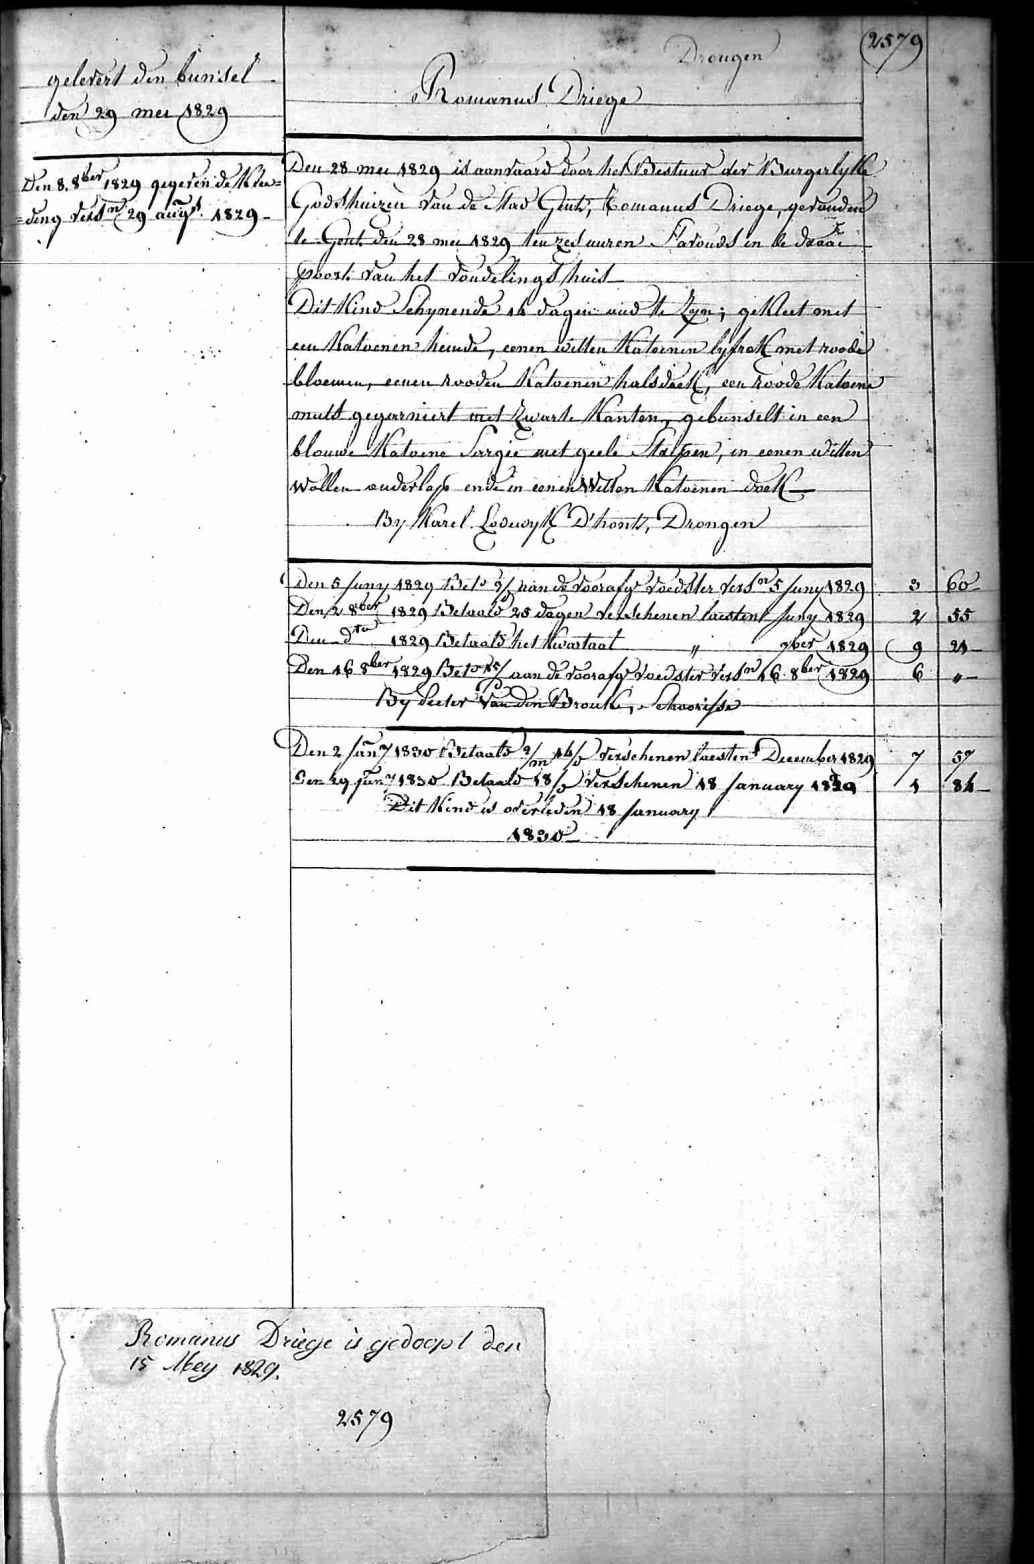 Drongen
2579
gelevert den bunsel
den 29 mei 1829
Romanus Driege
Den 8. 8ber 1829 gegeven de klee=
=ding verSn 29 augt. 1829
Den 28 mei 1829 is aanvaard door het Bestuur der Burgerlyke
Godshuizen van de Stad Gent, Romanus Driege, gevonden
te Gent den 28 mei 1829 ten zes uuren s'avonds in de draai
poort van het vondelings huis
Dit Kind Schynende 14 dagen oud te zyn; gekleet met
een Katoenen hemde, eenen witten Katoenen lyfrok met roode
bloemen, eenen rooden Katoenen halsdoek, een roode Katoene
muts gegarniert met zwarte Kanten, gebunselt in een
blouwe Katoene Sargie met geele Strepen, in eenen witten
wollen onderlap ende in eenen Witten Katoenen doek
By Karel Lodewyk D'hont, Drongen
Den 5 Juny 1829 Bet. aan de voorafge voedster versn 5 Juny 1829 3 60
Den 2 8ber 1829 Betaald 25 dagen verschenen laesten Juny 1829 2 55
Den dto 1829 Betaald het Kwartaal " 7ber 1829 9 21
Den 16 8ber 1829 Bet. aan de voorafge voedster versn 16 8ber 1829 6 "
By Pieter Van Den Brouke, Schoorisse
Den 2 Jany 1830 Betaald 2/m 16/d verschenen laesten December 1829 7 57
Den 29 Jany 1830 Betaald 18/d verschenen 18 January 1829 1 84
Dit Kind is overleden 18 January
1830
Romanus Driege is gedoopt den
15 Mey 1829.
2579